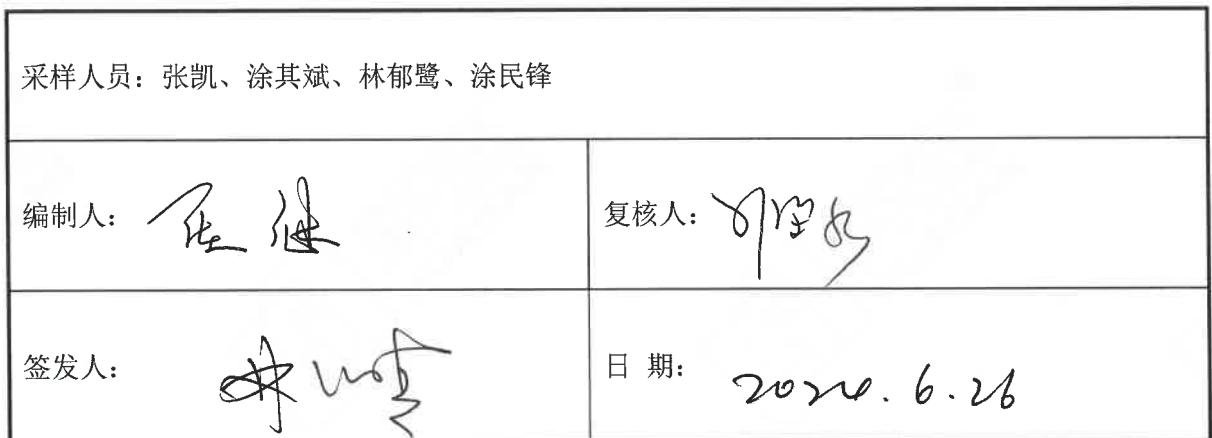 采样人员：张凯、涂其斌、林郁鹭、涂民锋
编制人：
复核人：
签发人：
日 期：2024.6.26